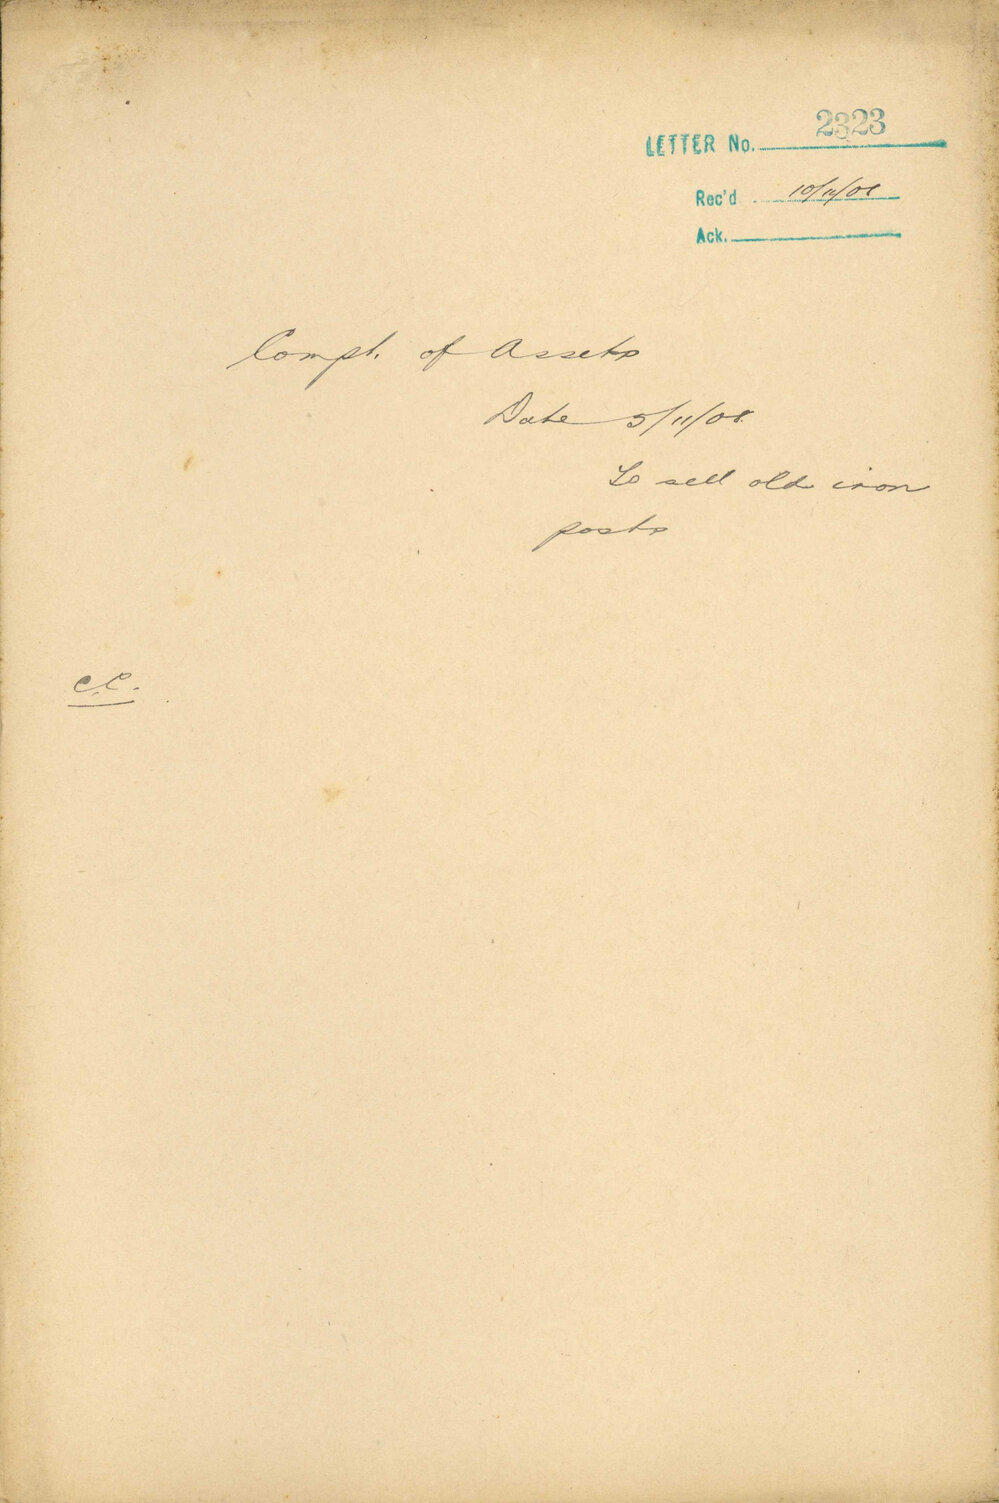 LETTER No. 2323
Rec'd 10/11/08
Ack.
Compt. of Assets
Date 5/11/08
To sell old iron
posts
C.C.